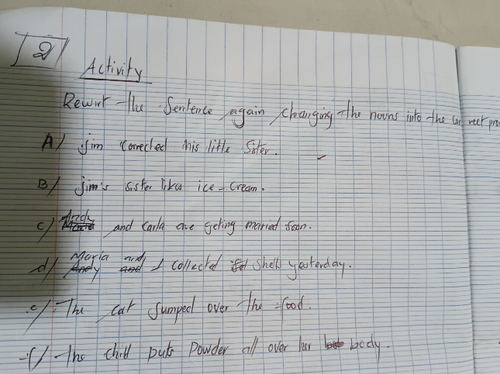 2
Activity
Rewirt the Sentence again, changing the nouns into the
A/ jim corrected his little Sister.
B/ jim's sister likes ice-cream.
c/ Andy and Carla are geting maried soon.
d/ Maria and I collected shells yesterday.
e/ The cat Jumped over the food.
f/ the child puts Powder all over her body.